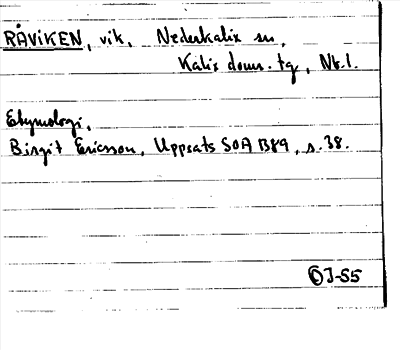 RÅVIKEN, vik, Nederkalix sn,
Kalix doms. tg, Nb.l.
Etymologi,
Birgit Ericsson, Uppsats SOA B89, s. 38.
OJ-S5